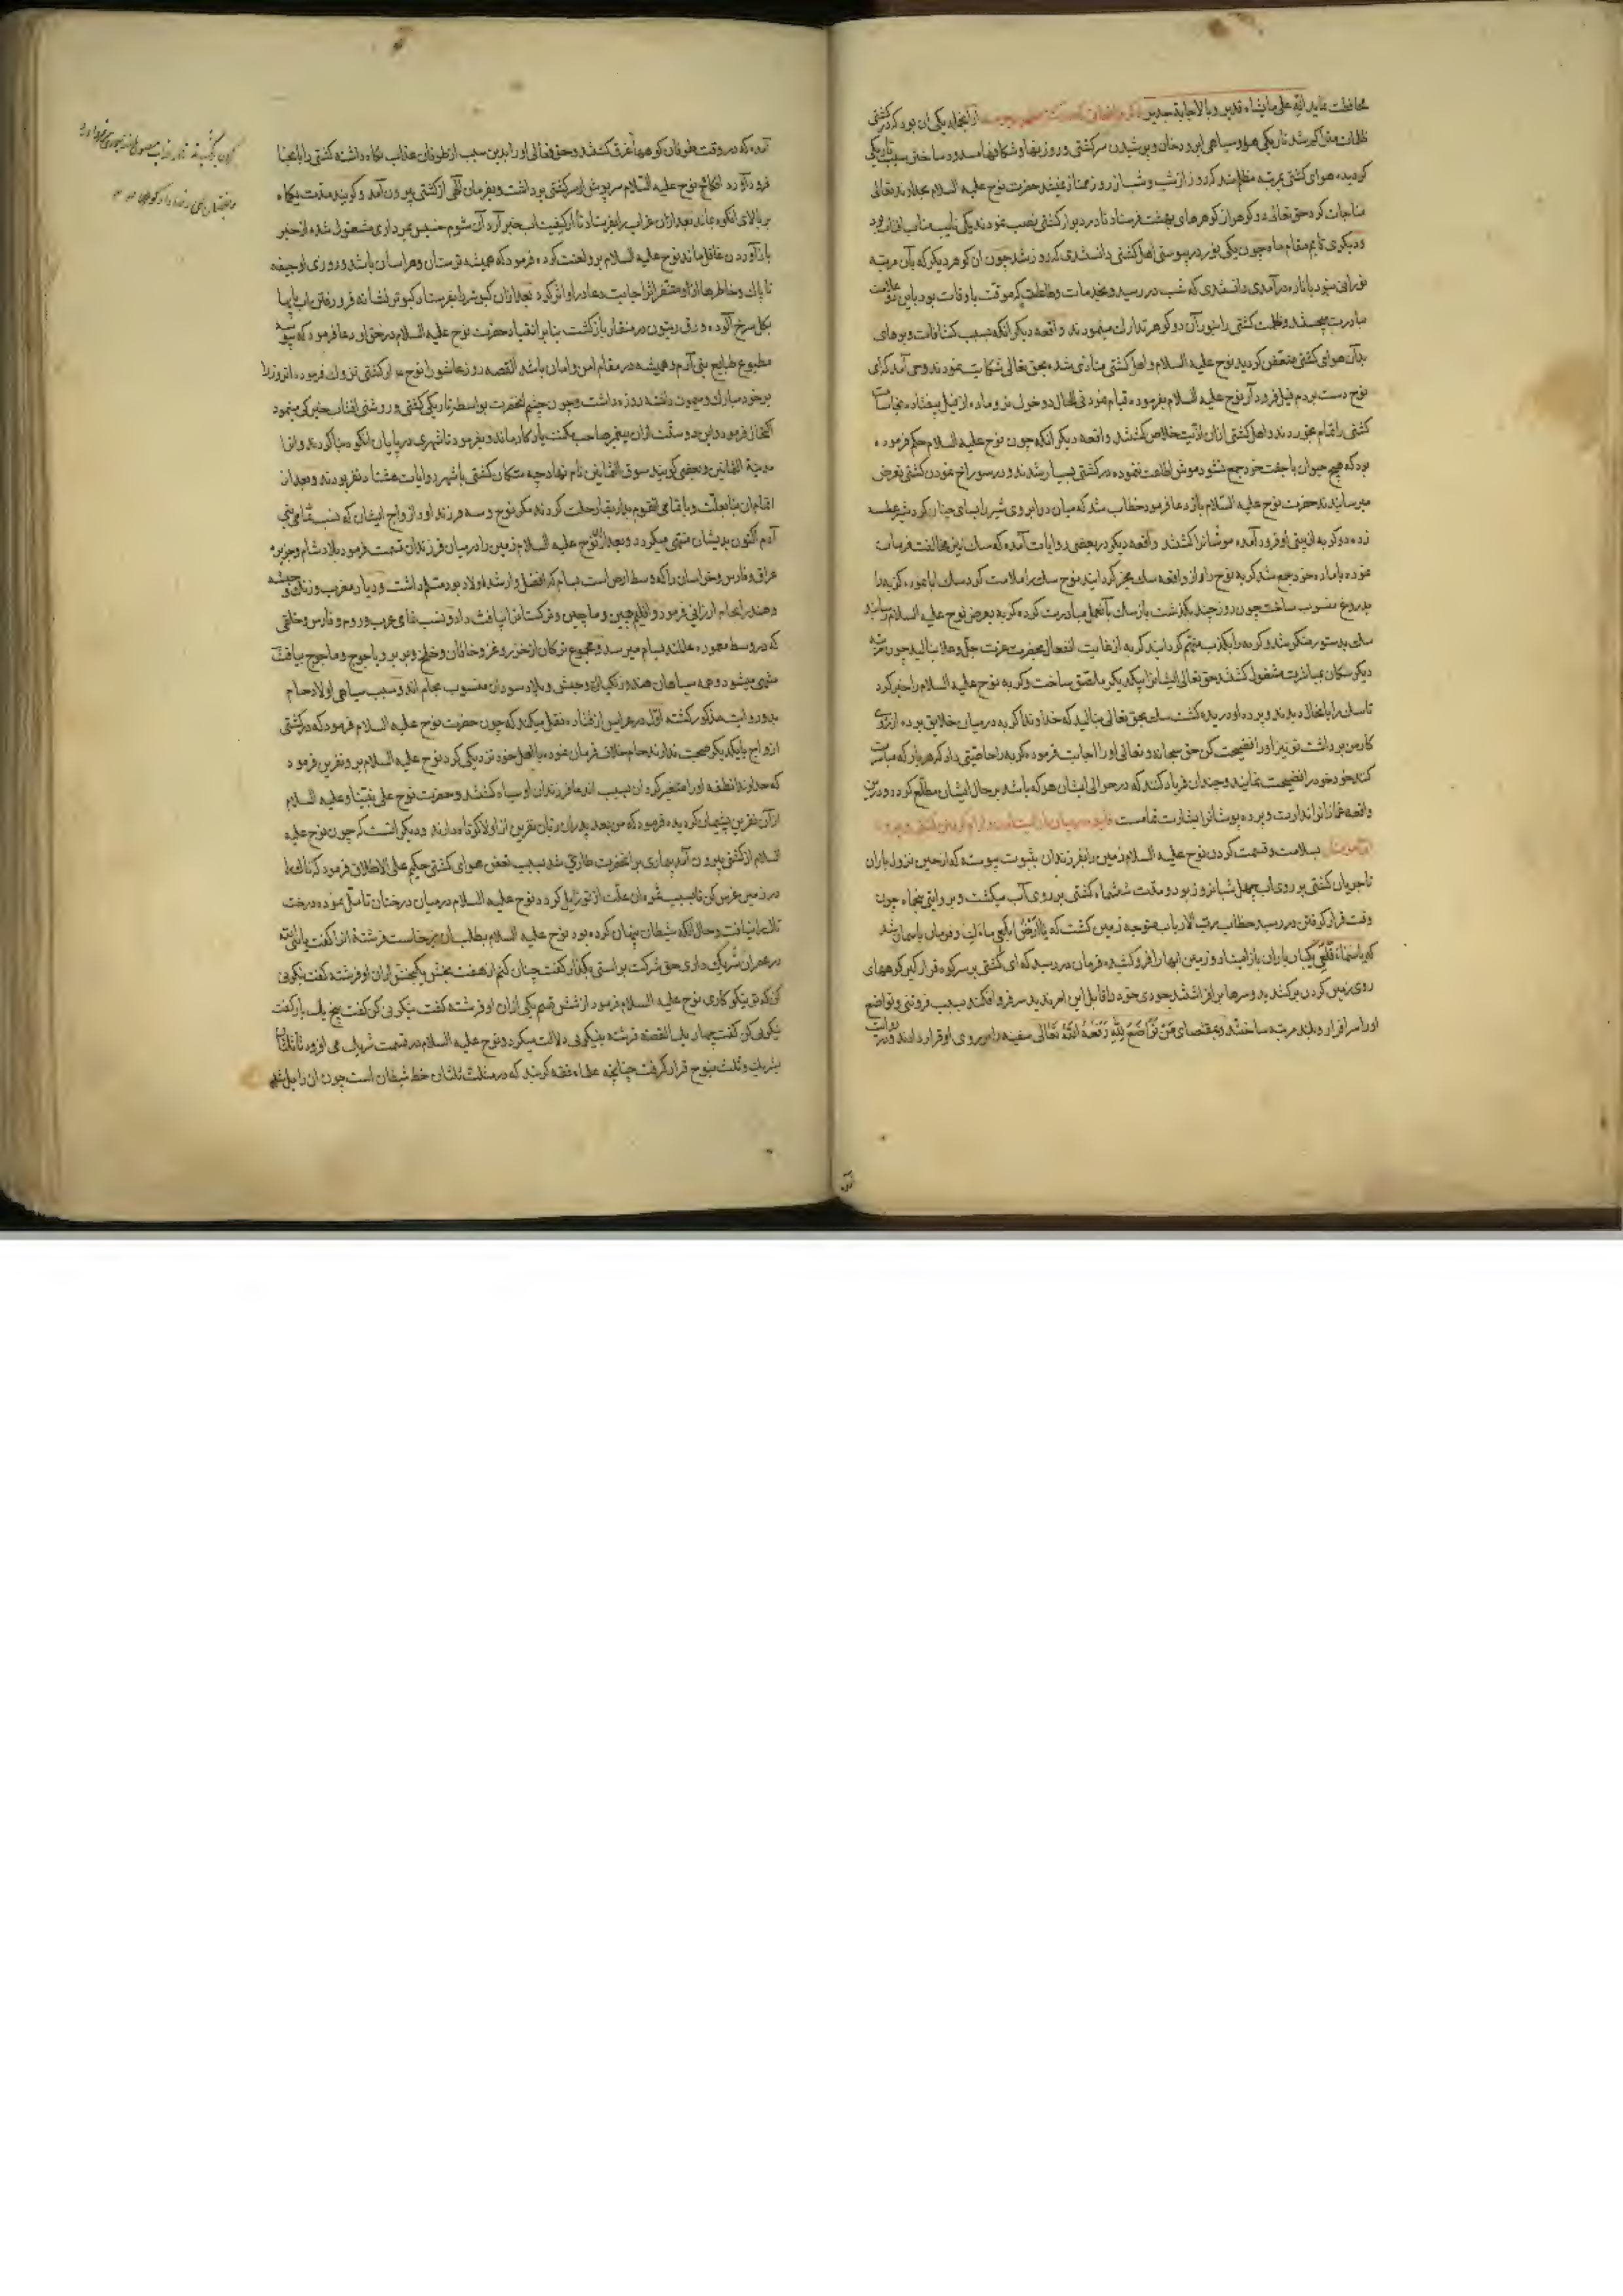 محافظت نماید انه علی مایشاء قدیر و بالاجابة جدیر از آنجمله یکی آن بود که در کشتی
کردیده هوای کشتی بمرتبه مظلم شد که روز از شب و شب از روز ممتاز نمیشد حضرت نوح علیه السلام بخداوند تعالی
مناجات کرد حق تعالی دو کوهر از کوهرهای بهشت فرستاد تا در دیوار کشتی نصب نمودند یکی نایب مناب آفتاب بود
و دیکری قایم مقام ماه چون یکی بنور در پیوستی اهل کشتی دانستندی که روز شد چون آن کوهر دیکر که بآن مرتبه
نورانی نبود باناره درآمدی دانستندی که شب در رسید و بخدمات و طاعات که موقت باوقات بود باین علامت
مبادرت و ظلمت کشتی را بنور آن دو کوهر تدارک مینمودند واقعه دیکر آنکه بسبب کثافات و بوهای
بد آن هوای کشتی متعفن کردید نوح علیه السلام و اهل کشتی متاذی شده بحق تعالی شکایت نمودند وحی آمد که ای
نوح دست بر دم فیل فرود آر نوح علیه السلام بفرموده قیام نمود فی الحال دو خوک نر و ماده از فیل بیفتاده نجاسات
کشتی را تمام بخوردند و اهل کشتی ازان اذیت خلاص کشتند واقعه دیکر آنکه چون نوح علیه السلام حکم فرموده
بود که هیچ حیوان با جفت خود جمع نشود موش اطاعت ننموده در کشتی بسیار شدند و در سوراخ نمودن کشتی تعرض
میرسانیدند حضرت نوح علیه السلام باز دعا فرمود خطاب شد که میان دو ابروی شیر را بمال چنان کرد شیر عطسه
زده دو کربه از بینی او فرود آمده موشانرا کشتند واقعه دیکر در بعضی روایات آمده که سک نیز مخالفت فرمان
نموده با ماده خود جمع شد کربه نوح را از واقعه سک مخبر کردانید نوح سک را ملامت کرد سک ابا نموده کربه را
بدروغ منسوب ساخت چون روز چند بکذشت باز سک بآنعمل مبادرت کرده کربه بعرض نوح علیه السلام رسانید
سک بدستور منکر شد و کربه را بکذب متهم کردانید کربه از غایت انفعال بحضرت عزت جل و علا بنالید چون مرتبه
دیکر سکان بمباشرت مشغول کشتند حق تعالی ایشانرا بیکدیکر ملتصق ساخت و کربه نوح علیه السلام را خبر کرد
تا سک را بآنحال دیدند و پرده او دریده کشت سک بحق تعالی بنالید که خداوندا کربه در میان خلایق پرده از روی
کار من برداشت تو نیز او را فضیحت کن حق سبحانه و تعالی او را اجابت فرموده کربه را خاصیتی داد که هربار که مباشرت
کند خود خود را فضیحت نماید و چندان فریاد کند که در حوالی ایشان هر که باشد بر حال ایشان مطلع کردد و درین
واقعه غمازانرا انذارست و پرده پوشانرا بشارت تمامست
بسلامت و قسمت کردن نوح علیه السلام زمین را بفرزندان بثبوت پیوسته که از حین نزول باران
تا جریان کشتی بر روی آب چهل شبانروز بود و مدت ششماه کشتی بر روی آب میکشت و بروایتی پنجماه چون
وقت قرار کرفتن در رسید خطاب رب الارباب متوجه زمین کشت که یا ارض ابلعی ماءک و فرمان بآسمان شد
که یا سماء اقلعی یکبار باران باز ایستاد و زمین آبها را فرو کشیده فرمان در رسید که ای کشتی بر سر کوه قرار کیر کوههای
روی زمین کردن برکشیدند و سرها برافراشتند جودی خود را قابل این امر ندید سر فرو افکند بسبب فروتنی و تواضع
او را سرافراز و بلند مرتبه ساختند و بمقتضای من تواضع لله رفعه الله تعالی سفینه را بر روی او قرار دادند و در روایت
آمده که در وقت طوفان کوهها غرق کشتند و حق تعالی او را بدین سبب از طوفان عذاب نکاه داشته کشتی را بآنجا
فرود آورد آنکاه نوح علیه السلام سرپوش از سر کشتی برداشت و بفرمان الهی از کشتی بیرون آمد و کویند مدت یکماه
بر بالای آنکوه بماند بعد ازان غراب را بفرستاد تا از کیفیت آب خبر آرد آن شوم خسیس بمرداری مشغول شده از خبر
باز آوردن غافل ماند نوح علیه السلام برو لعنت کرده فرمود که همیشه ترسان و هراسان باشد و روزی او جیفه
ناپاک و خاطرها ازو متنفر اثر اجابت دعا در او اثر کرد بعد ازان کبوتر را بفرستاد کبوتر نشانه فرو رفتن آب پایها
بکل سرخ آلوده و ورق زیتون در منقار بازکشت بنابر انقیاد حضرت نوح علیه السلام در حق او دعا فرمود که
مطبوع طبایع بنی آدم و همیشه در مقام امن و امان باشد القصه روز عاشورا نوح از کشتی نزول فرموده آنروز را
بر خود مبارک و میمون دانسته روزه داشت و چون چشم آنحضرت بواسطه تاریکی کشتی و روشنی آفتاب خیرکی مینمود
اکتحال فرمود و این دو سنت ازان پیغمبر صاحب یادکار ماند و بفرمود تا شهری در پایان آنکوه بنا کردند و آنرا
مدینة الثمانین و بعضی کویند سوق الثمانین نام نهاد چه سکان کشتی باشهر روایات هشتاد نفر بودند و بعد از
آدم اکنون بدیشان منتهی میکردد و بعد ازان نوح علیه السلام زمین را در میان فرزندان قسمت فرمود بلاد شام و جزیره
عراق و فارس و خراسان را که وسط ارض است بسام که افضل و ارشد اولاد بود مسلم داشت و دیار مغرب و زنک و حبشه
و هند را بحام ارزانی فرمود و اقلیم چین و ماچین و ترکستان را بیافث داد و نسب عرب و روم و فارس و خلقی
که در وسط معموره عالمند بسام میرسد و مجموع ترکان از خزر و غز و خاقان و خلخ و بربر و یاجوج و ماجوج بیافث
منتهی میشود و همه سیاهان هند و زنکبار و حبش و بلاد سودان منسوب بحام اند و سبب سیاهی اولاد حام
بدو روایت مذکور کشته اول در عرایس از قتاده نقل میکند که چون حضرت نوح علیه السلام فرمود که در کشتی
ازواج با یکدیکر صحبت ندارند حام خلاف فرمان نموده با اهل خود نزدیکی کرد نوح علیه السلام برو نفرین فرمود
که خداوندا نطفه او را متغیر کردان بسبب آن دعا فرزندان او سیاه کشتند و حضرت نوح علی نبینا و علیه السلام
از آن نفرین پشیمان کردیده فرمود که من بعد پدران زبان نفرین از اولاد کوتاه دارند و دیکر آنست که چون نوح علیه
السلام از کشتی بیرون آمد بیماری بر آنحضرت طاری شد بسبب تعفن هوای کشتی حکیم علی الاطلاق فرمود که تاک را
در زمین غرس کن تا بسبب میوه آن علت از تو زایل کردد نوح علیه السلام در میان درختان تامل نموده درخت
تاک را نیافت و حال آنکه شیطان پنهان کرده بود نوح علیه السلام بطلب آن برخاست فرشته او را کفت یا نبی الله
در عمر آن شریک داری حق شرکت براستی بکذار کفت چنان کنم از هفت بخش یکبخش ازان او فرشته کفت نیکویی
کن که تو نیکوکاری نوح علیه السلام فرمود از شش قسم یکی ازان او فرشته کفت نیکویی کن کفت پنج یک باز کفت
نیکویی کن کفت چهار یک القصه فرشته بنیکویی دلالت میکرد و نوح علیه السلام در قسمت شریک می افزود تا ثلثان
بشریک و ثلث بنوح قرار کرفت چنانچه علماء فقه کویند که در مثلث ثلثان حظ شیطان است چون آن زایل شد